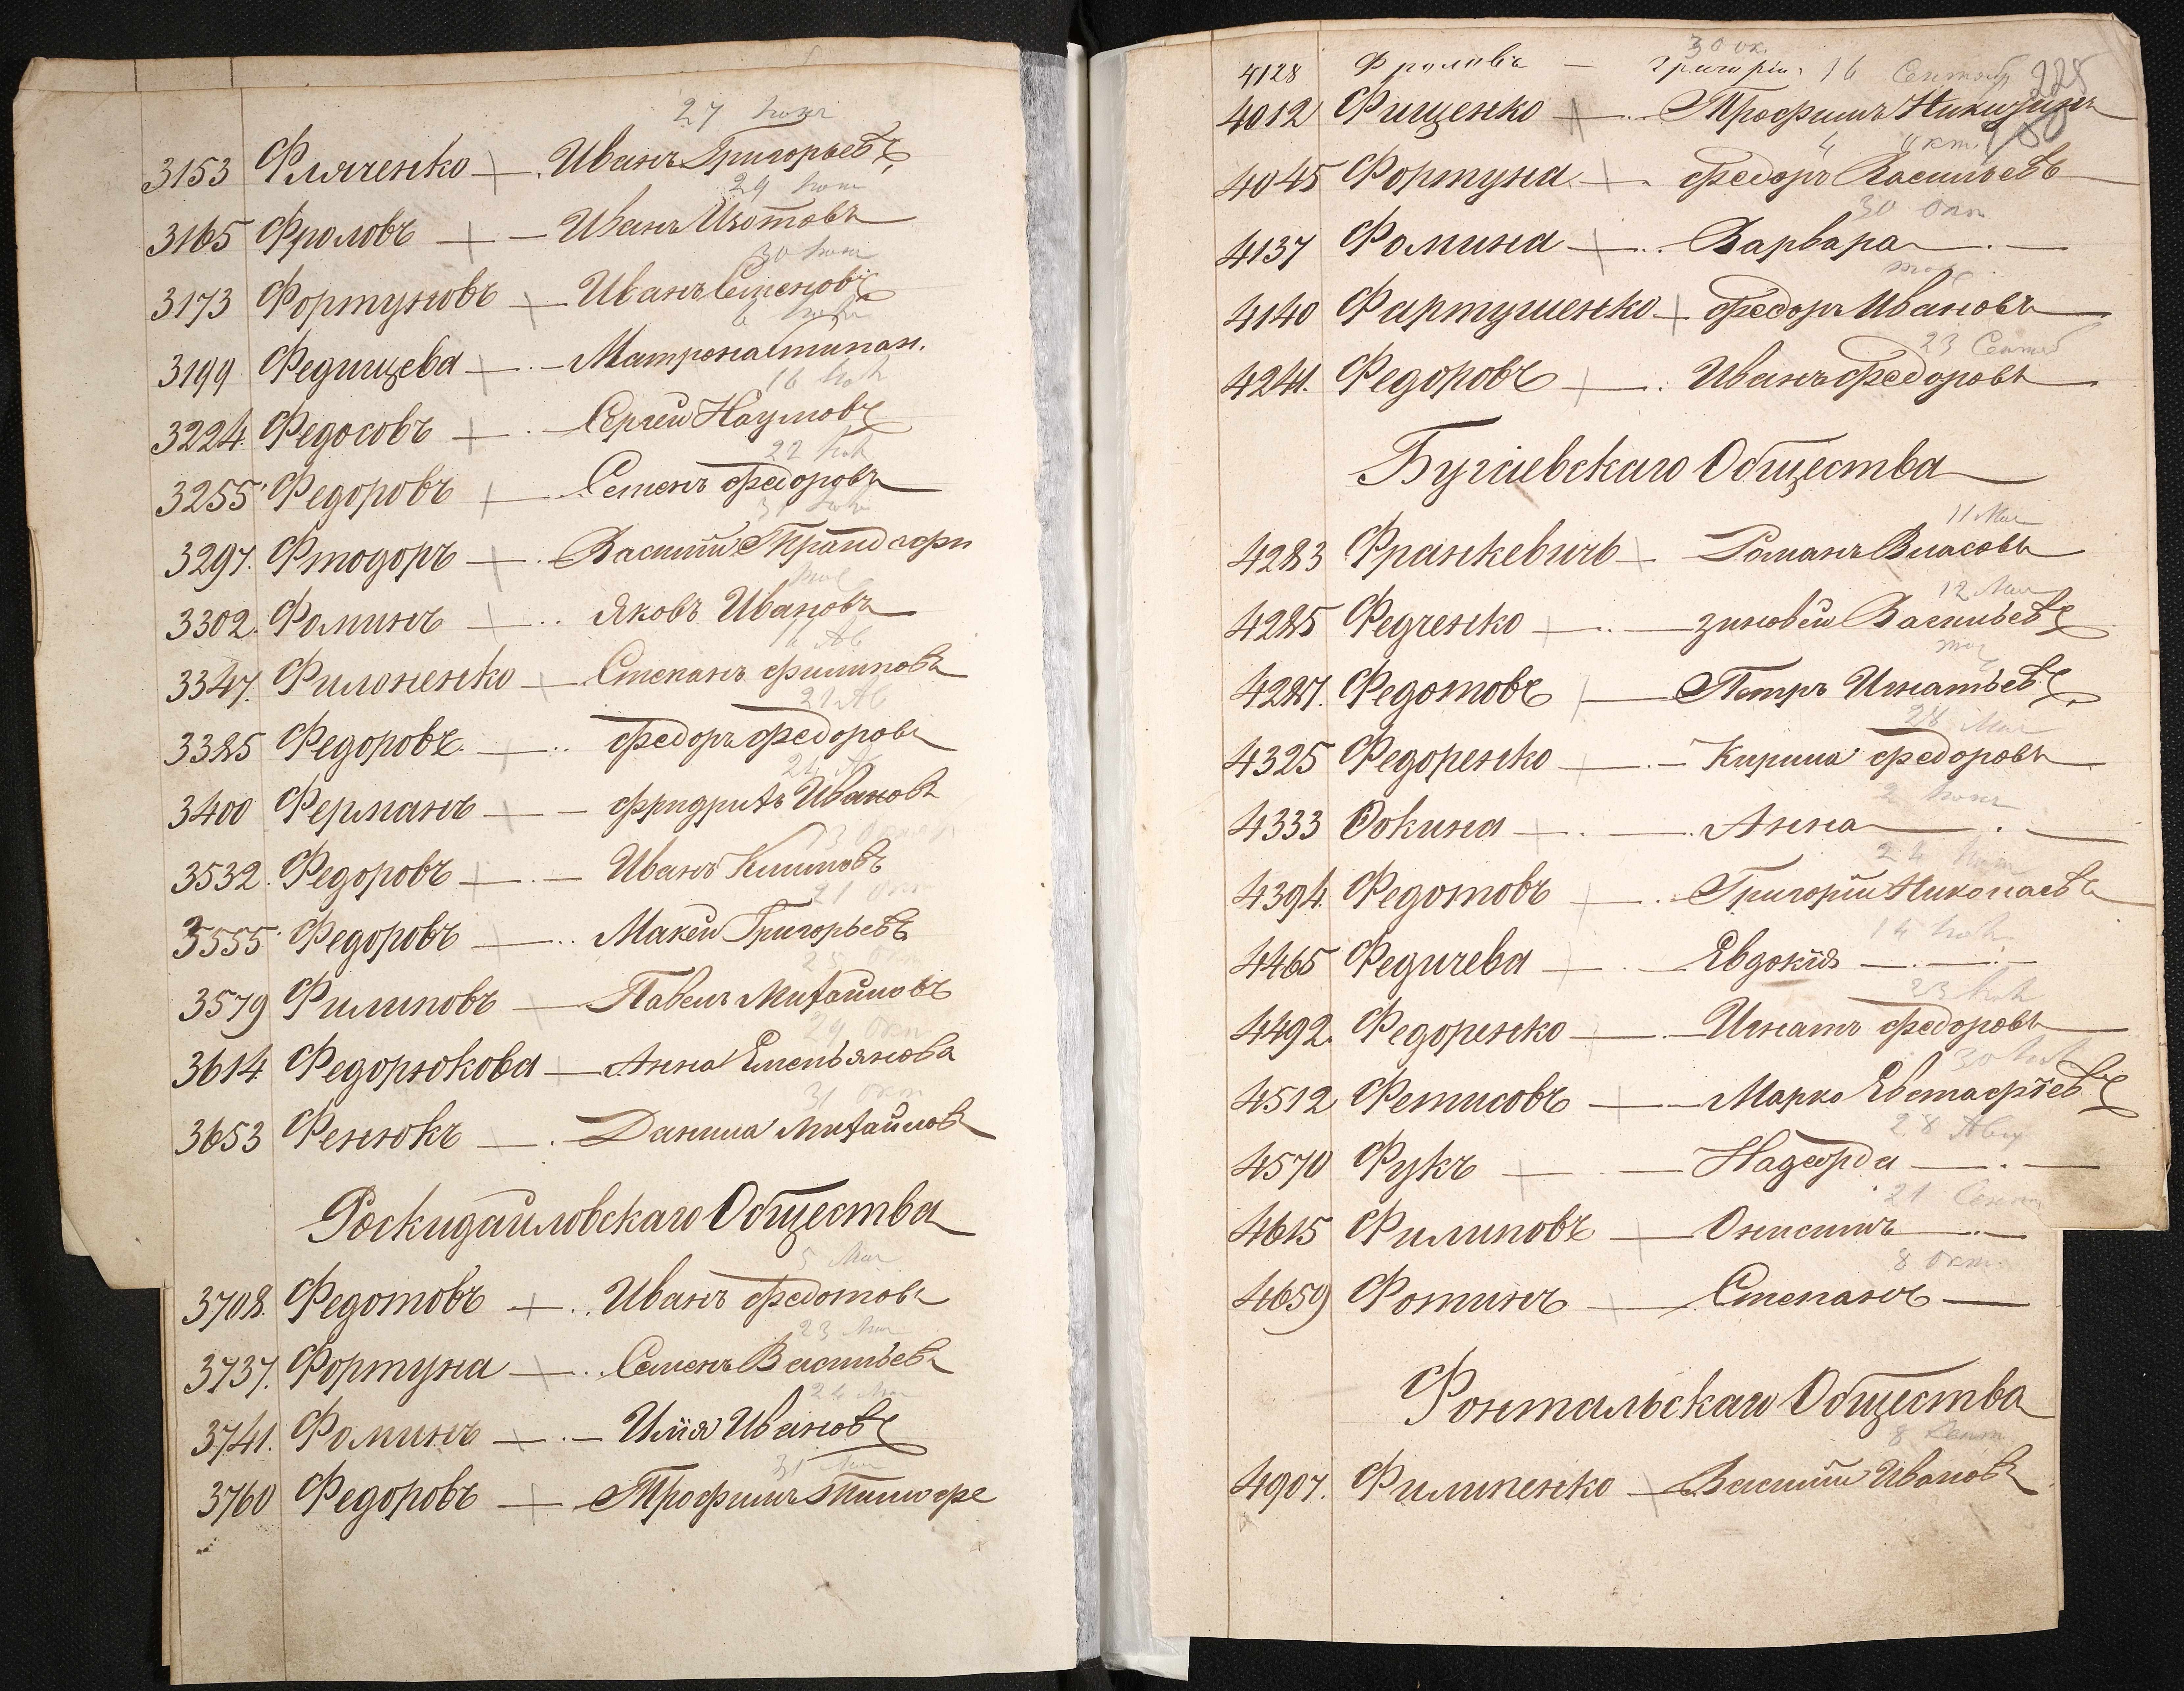 27 Июня
3153 Фляченко — Иванъ Григорьевъ
29 Июн
3165 Фроловъ — Иванъ Изотовъ
30 Июн
3173 Фортуновъ — Иванъ Семеновъ
3199 Федищева — Матрона Стипан.
16 Июл
3224 Федосовъ — Сергей Наумовъ
22 Июл
3255 Федоровъ — Семенъ Федоровъ
31 Июл
3297. Фтодоръ — Василий
3302. Фоминъ — Яковъ Ивановъ
16 Ав
3347. Филоненко — Степанъ Филиповъ
21 Ав
3385 Федоровъ — Федоръ Федоровъ
3400 Ферманъ — Фридрихъ Ивановъ
3532. Федоровъ — Иванъ Климовъ
21 Окт
3555 Федоровъ — Макей Григорьевъ
3579 Филиповъ — Павелъ Михайловъ
29 Окт
3614 Федорюкова — Анна Емельянова
31 Окт
3653 Фенюкъ — Данила Михайловъ
Роскидайловскаго Общества
5 Мая
3708. Федотовъ — Иванъ Федотовъ
23 Мая
3737. Фортуна — Семенъ Васильевъ
3741. Фоминъ — Илія Ивановъ
31 Мая
3760 Федоровъ — Трофимъ Тимофе
30 ок.
4128 Фроловъ — Григорій 16 Сентяб 225
4012 Фищенко — Трофимъ Никитинъ
4 Окт.
4045 Фортуна — Федоръ Васильевъ
30 Окт
4137 Фомина — Варвара
4140 Фартушенко — Федоръ Ивановъ
23 Сентяб
4241. Федоровъ — Иванъ Федоровъ
Бугаевскаго Общества
11 Мая
4283 Франкевичъ — Романъ Власовъ
12 Мая
4285 Федченко — Зиновей Васильевъ
4287. Федотовъ — Петръ Игнатьевъ
28 Мая
4325 Федоренко — Кирила Федоровъ
2 Июня
4333 Фокина — Анна
24 Июн
4394. Федотовъ — Григорій Николаевъ
14 Июл
4465 Федичева — Евдокія
23 Июл
4492. Федоренко — Игнатъ Федоровъ
30 Июл
4512 Фетисовъ — Марко Евстафіевъ
28 Авгу
4570 Фукъ — Надежда
21 Сент
4615 Филиповъ — Онисимъ
8 Окт.
4659 Фотинъ — Степанъ
Фонтальскаго Общества
8 Сент
4907. Филипенко — Василій Ивановъ